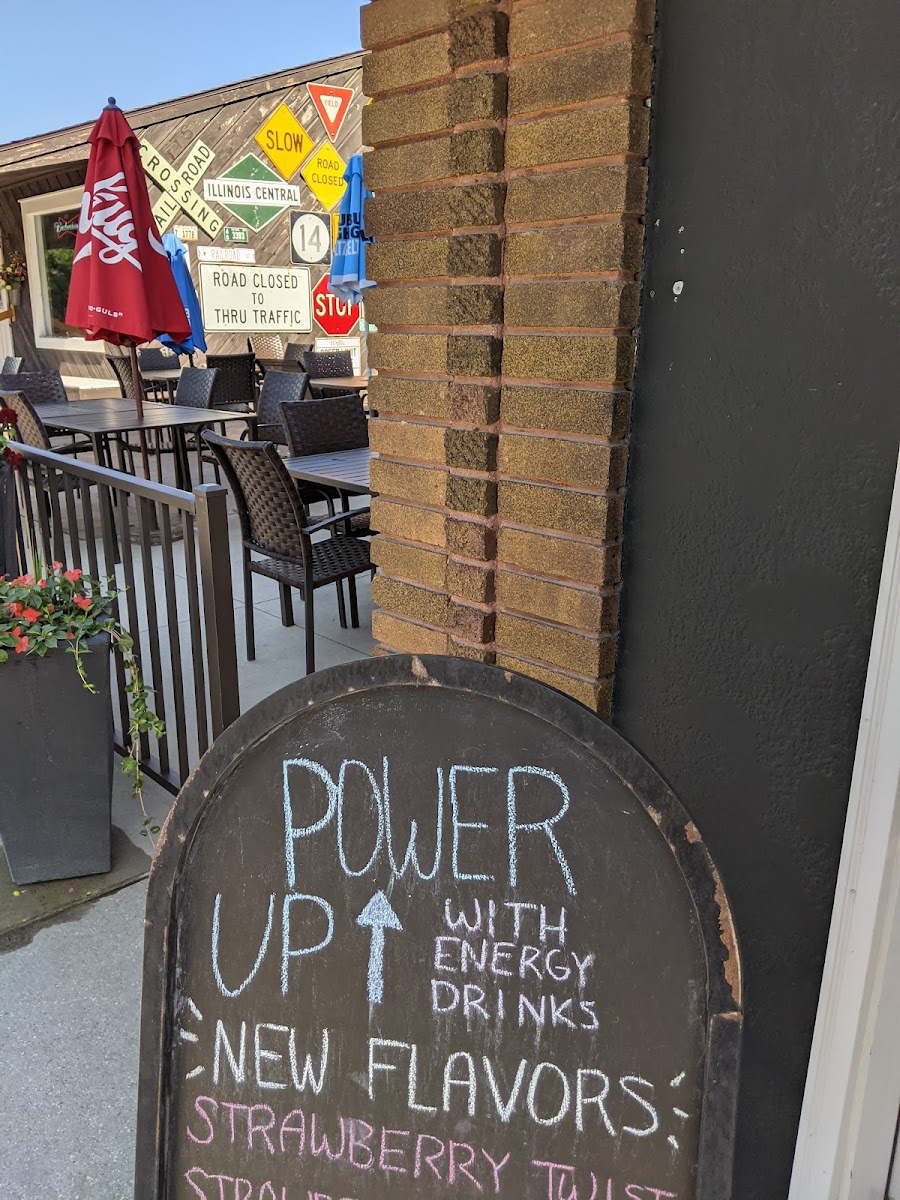 YIELD
SLOW
ROAD
CLOSED
RAILROAD
CROSSING
ILLINOIS CENTRAL
14
RAILROAD
ROAD CLOSED
TO
THRU TRAFFIC
STOP
POWER
UP
WITH
ENERGY
DRINKS
NEW FLAVORS
STRAWBERRY TWIST